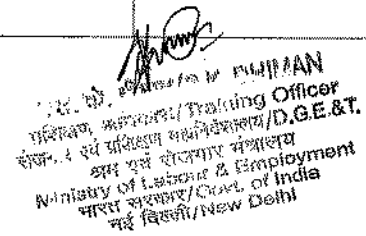 DHIMAN
प्रशिक्षण /Training Officer
एवं प्रशिक्षण महानिदेशालय/D.G.E.&T.
श्रम एवं रोजगार मंत्रालय
Ministry of Labour & Employment
भारत सरकार/Govt. of India
नई दिल्ली/New Delhi